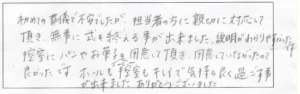 初めての葬儀で不安でしたが、担当者の方に親切に対応して
頂き、無事に式を終える事が出来ました。説明がわかりやすかったです
控室にパンやお菓子を用意して頂き、用意していなかったので
良かったです ホールも控室もキレイで気持ち良く過ごす事
が出来ました ありがとうございました